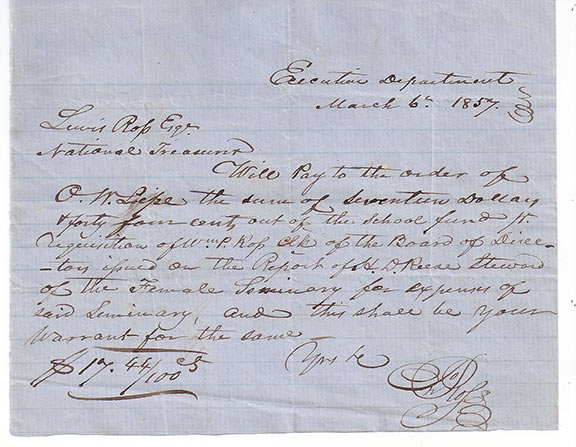 Executive Department
March 6th 1857.
Lewis Ross Esqr.
National Treasurer
Will Pay to the order of
O. W. Lipe the sum of Seventeen Dollars
& forty four cents out of the school fund pr.
requisition of Wm P Ross Clk of the Board of Direc-
-tors issued on the Report of H. D. Reese Steward
of the Female Seminary for expenses of
said Seminary, and this shall be your
Warrant for the same
$ 17. 44/100 cts
Yrs &c
Jno Ross